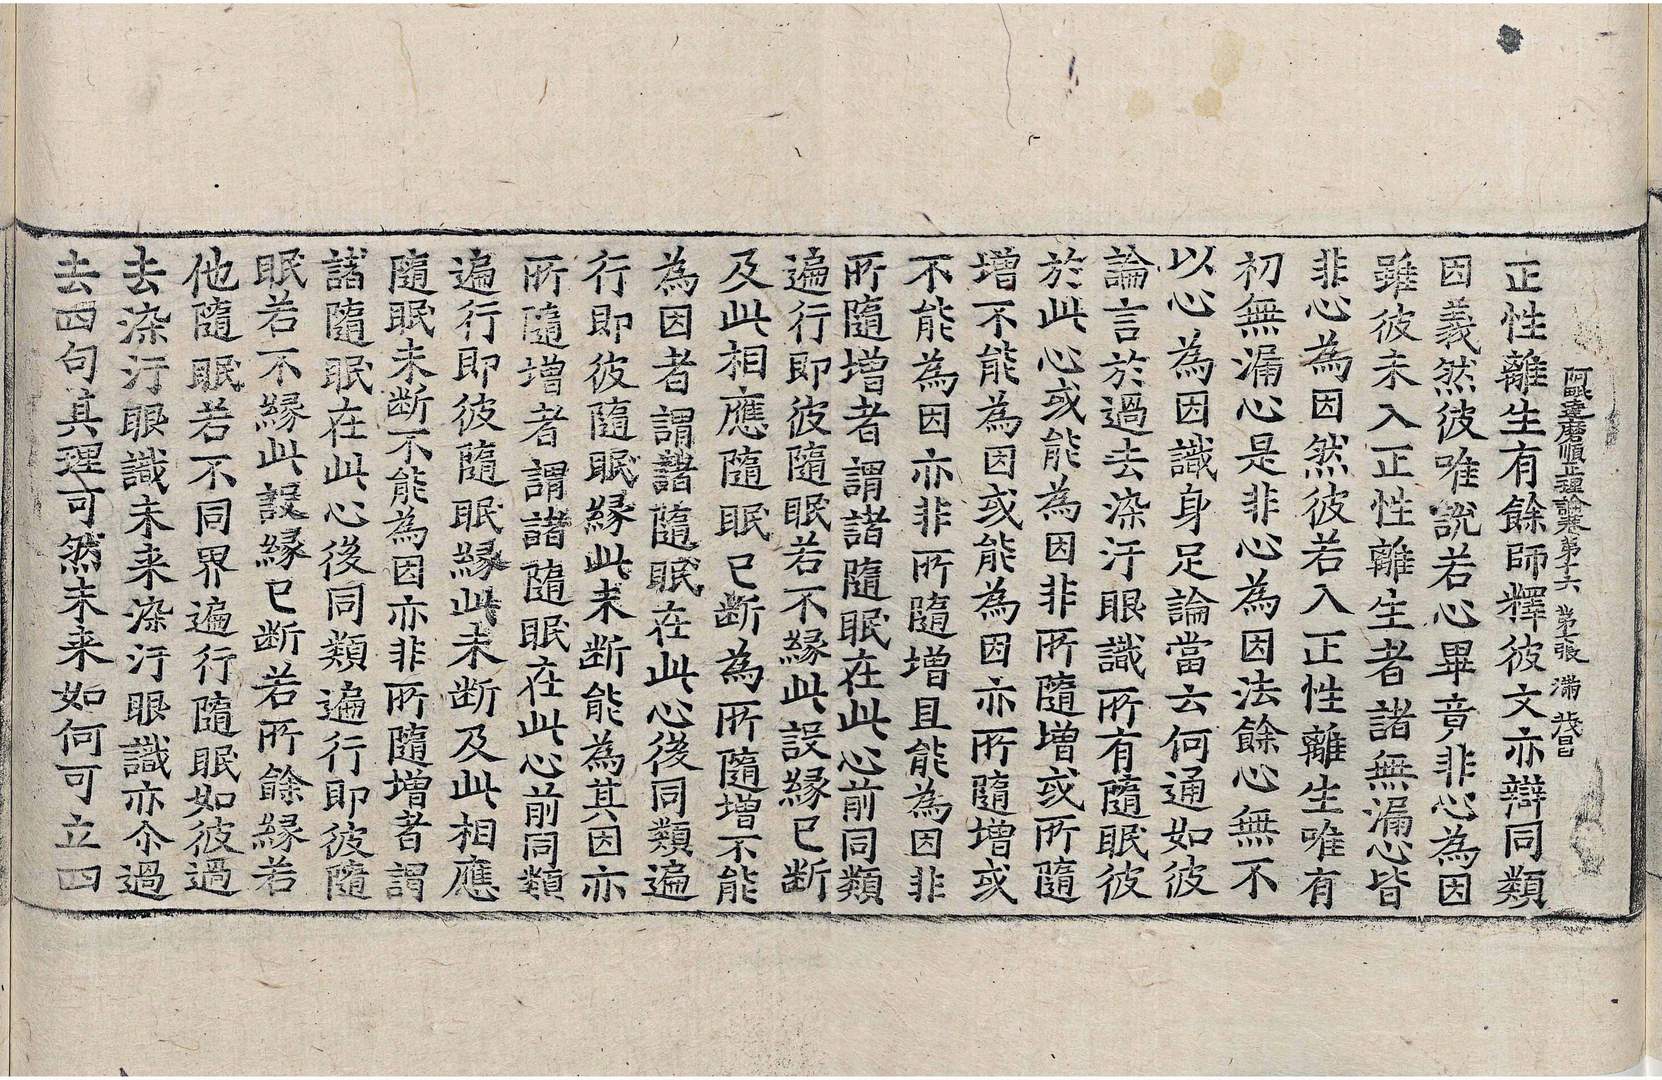 阿毗達磨順正理論卷第十六 第七張 滿 茂昌
正性離生有餘師釋彼文亦辯同類
因義然彼唯說若心畢竟非心為因
雖彼未入正性離生者諸無漏心皆
非心為因然彼若入正性離生唯有
初無漏心是非心為因法餘心無不
以心為因識身足論當云何通如彼
論言於過去染汙眼識所有隨眠彼
於此心或能為因非所隨增或所隨
增不能為因或能為因亦所隨增或
不能為因亦非所隨增且能為因非
所隨增者謂諸隨眠在此心前同類
遍行即彼隨眠若不緣此設緣已斷
及此相應隨眠已斷為所隨增不能
為因者謂諸隨眠在此心後同類遍
行即彼隨眠緣此未斷能為其因亦
所隨增者謂諸隨眠在此心前同類
遍行即彼隨眠緣此未斷及此相應
隨眠未断不能為因亦非所隨增者謂
諸隨眠在此心後同類遍行即彼隨
眠若不緣此設緣已斷若所餘緣若
他隨眠若不同界遍行隨眠如彼過
去染汙眼識未来染汙眼識亦尒過
去四句其理可然未来如何可立四